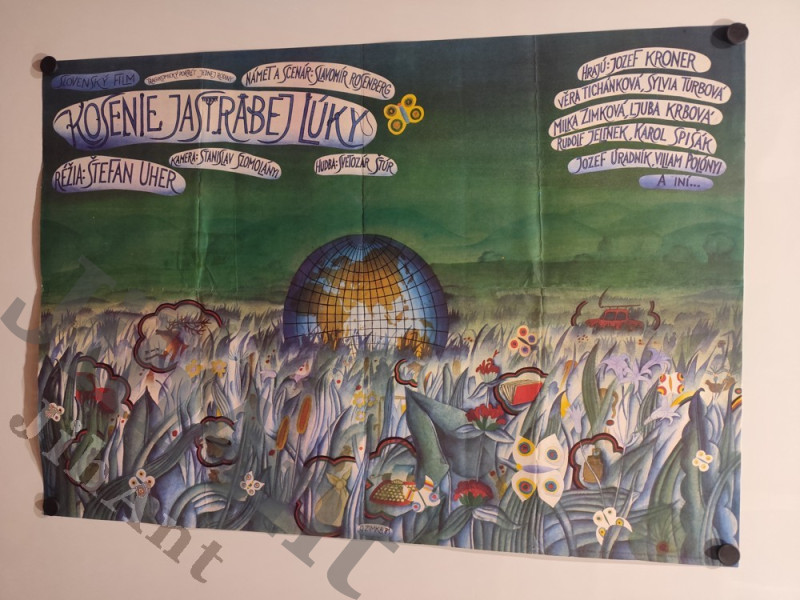 SLOVENSKÝ FILM
NÁMET A SCENÁR: SLAVOMÍR ROSENBERG
KOSENIE JASTRABEJ LÚKY
RÉŽIA: ŠTEFAN UHER
KAMERA: STANISLAV SZOMOLÁNYI
HUDBA: SVETOZÁR ŠTÚR
HRAJÚ: JOZEF KRONER
VĚRA TICHÁNKOVÁ, SYLVIA TURBOVÁ
MILKA ZIMKOVÁ, ĽUBA KRBOVÁ
RUDOLF JELÍNEK, KAROL SPIŠÁK
JOZEF ÚRADNÍK, VILIAM POLÓNYI
A INÍ...
JibAnt